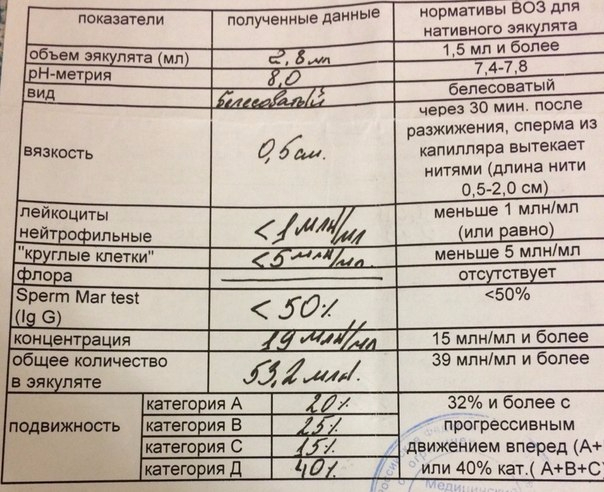 показатели полученные данные нормативы ВОЗ для нативного эякулята
объем эякулята (мл) 2,8 мл 1,5 мл и более
pH-метрия 8,0 7,4-7,8
вид белесоватый белесоватый
вязкость 0,5 см. через 30 мин. после
разжижения, сперма из
капилляра вытекает
нитями (длина нити
0,5-2,0 см)
лейкоциты
нейтрофильные <1 млн/мл меньше 1 млн/мл
(или равно)
"круглые клетки" <5 млн/мл. меньше 5 млн/мл
флора отсутствует
Sperm Mar test
(Ig G) <50% <50%
концентрация 19 млн/мл 15 млн/мл и более
общее количество
в эякуляте 53,2 млн. 39 млн/мл и более
подвижность
категория А 20%
категория В 25%
категория С 15%
категория Д 40%
32% и более с
прогрессивным
движением вперед (А+
или 40% кат.( А+В+С)
Медицинская